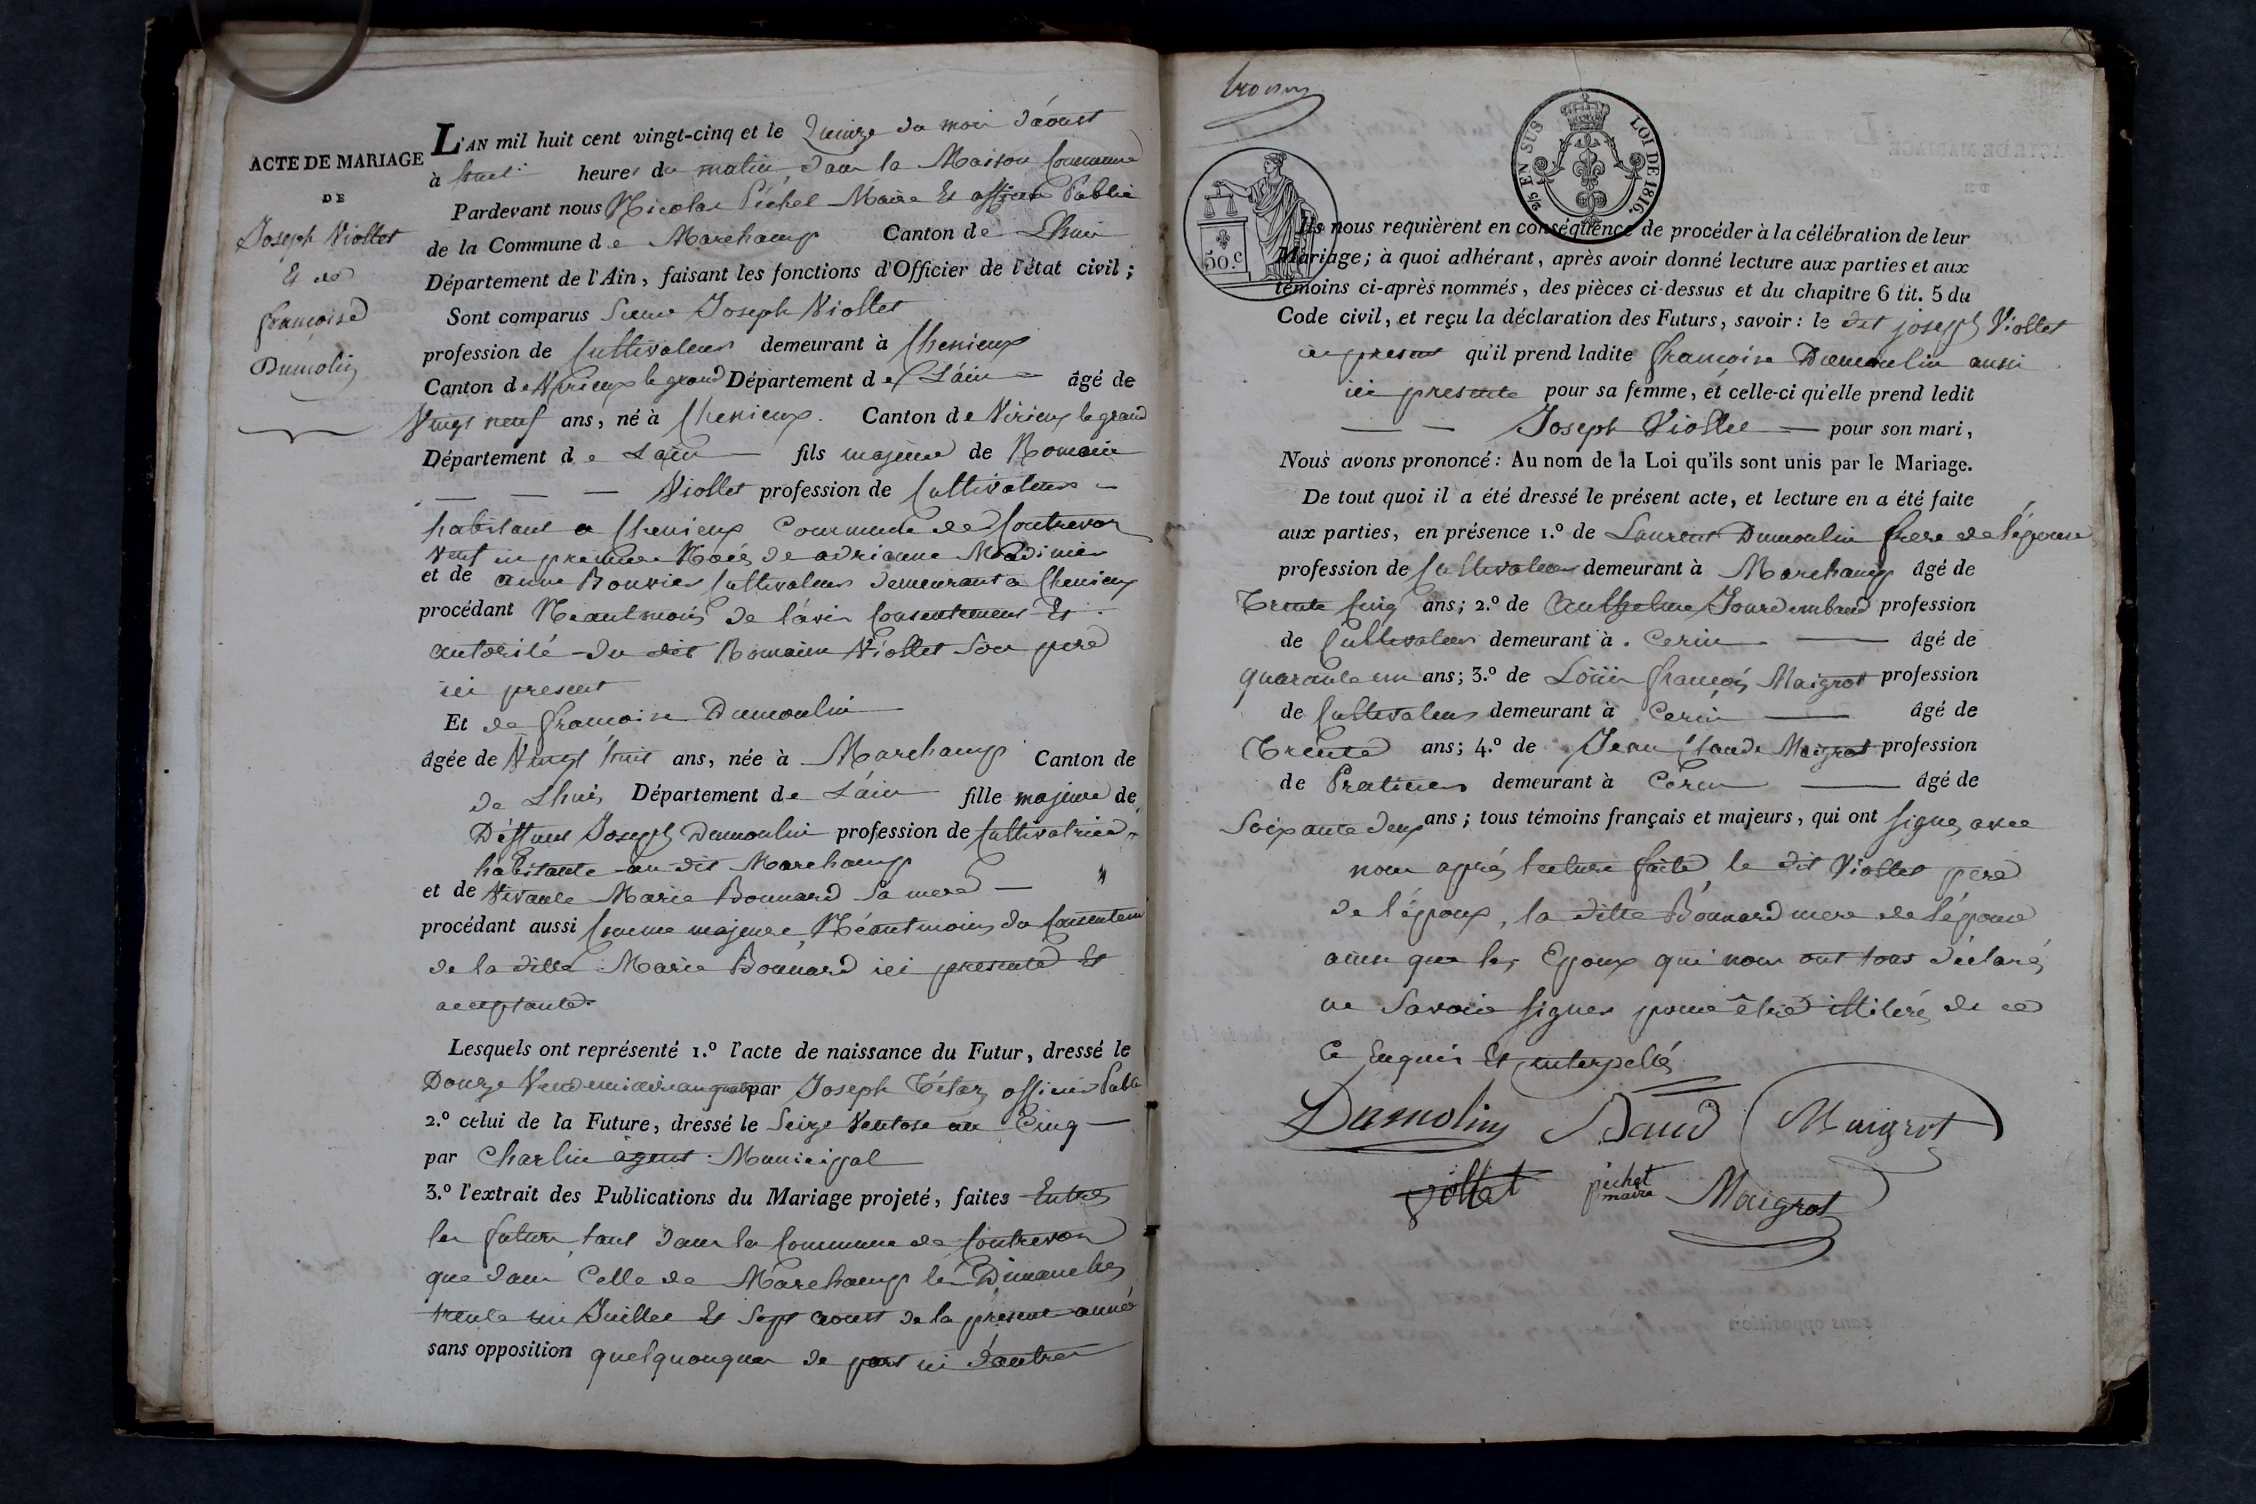 ACTE DE MARIAGE
DE
Joseph Viollet
Et de
françoise
Dumolin
L'AN mil huit cent vingt-cinq et le Quinze du mois d'áoust
à huit heures du matin, dans la Maison Commune
Pardevant nous Nicolas Péchet Maire Et officier Public
de la Commune de Marchamp Canton de Lhuis
Département de l'Ain, faisant les fonctions d'Officier de l'état civil;
Sont comparus Sieur Joseph Viollet
profession de Cultivateur demeurant à Chenieux
Canton de Virieux le grand Département de L'áin âgé de
Vingt neuf ans, né à Chenieux Canton de Virieux le grand
Département de Láin fils majeur de Romain
Viollet profession de Cultivateur
habitant a Chenieux Commune de Contrevoz
Veuf in premiere Noces de adrianne
et de anne Bouvier Cultivateur demeurant a Chenieux
procédant Néantmoins de l'avis Consentement Et
autorité du dit Romain Viollet Son pere
ici present
Et de françoise Dumoulin
âgée de Vingt huit ans, née à Marchamp Canton de
de Lhuis Département de L'áin fille majeure de
Déffunt Joseph Dumoulin profession de Cultivatrice
habitante au dit Marchamp
et de Vivante Marie Bonnard Sa mere
procédant aussi Comme majeure, Néantmoins du Consentem
de la ditte Marie Bonnard ici presente Et
acceptante
Lesquels ont représenté 1.º l'acte de naissance du Futur, dressé le
Douze Vendemiaire an quatre par Joseph Tétaz officier Public
2.º celui de la Future, dressé le Seize Ventose an Cinq
par Charlin agent Municipal
3.º l'extrait des Publications du Mariage projeté, faites Entre
les futurs, tant dans la Commune de Contrevoz
que dans Celle de Marchamp les Dimanches
trente un Juillet Et Sept aoust de la présente année
sans opposition quelquonques de part ni d'autre
25 EN SUS
LOI DE 1816.
50.c
Ils nous requièrent en conséquence de procéder à la célébration de leur
Mariage; à quoi adhérant, après avoir donné lecture aux parties et aux
témoins ci-après nommés, des pièces ci-dessus et du chapitre 6 tit. 5 du
Code civil, et reçu la déclaration des Futurs, savoir: le dit joseph Viollet
ici present qu'il prend ladite françoise Dumoulin aussi
ici presente pour sa femme, et celle-ci qu'elle prend ledit
Joseph Viollet pour son mari,
Nous avons prononcé: Au nom de la Loi qu'ils sont unis par le Mariage.
De tout quoi il a été dressé le présent acte, et lecture en a été faite
aux parties, en présence 1.º de Laurent Dumoulin frere de l'épouse
profession de Cultivateur demeurant à Marchamp âgé de
Trente Cinq ans; 2.º de Anthelme profession
de Cultivateur demeurant à Cerin âgé de
quarante un ans; 3.º de Loüis françois Maigrot profession
de Cultivateur demeurant à Cerin âgé de
Trente ans; 4.º de Jean Claude Maigrot profession
de Praticien demeurant à Cerin âgé de
Soixante deux ans; tous témoins français et majeurs, qui ont signé avec
nous aprés lecture faite, le dit Viollet pere
de l'époux, la ditte Bonnard mere de l'épouse
ainsi que les Epoux qui nous ont tous déclarés
ne Savoir signer pour être illiterés de ce
Ce Enquis Et interpellés
Dumolin Baud Maigrot
viollet péchet maire Maigrot